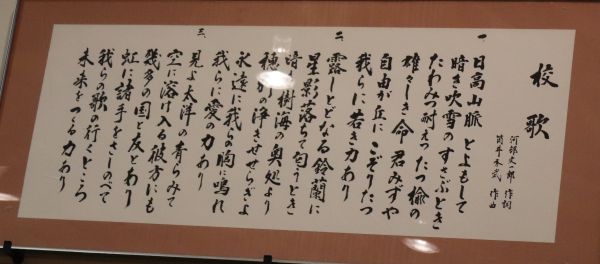 校歌
河邨文一郎 作詞
筒井末武 作曲
一、
日高山脈 とよもして
暗き吹雪の すさぶとき
たわみつ耐えつ たつ楡の
雄々しき命 君みずや
自由が丘に こぞりたつ
我らに若き力あり
二、
露しとどなる 鈴蘭に
星影落ちて匂うとき
暗き樹海の奥処より
穂かの浄きせせらぎよ
永遠に我らの胸に鳴れ
我らに愛の力あり
三、
見よ太洋の青らみて
空に溶け入る彼方にも
幾多の国と友とあり
虹に諸手をさしのべて
我らの歌の行くところ
未来をつくる力あり